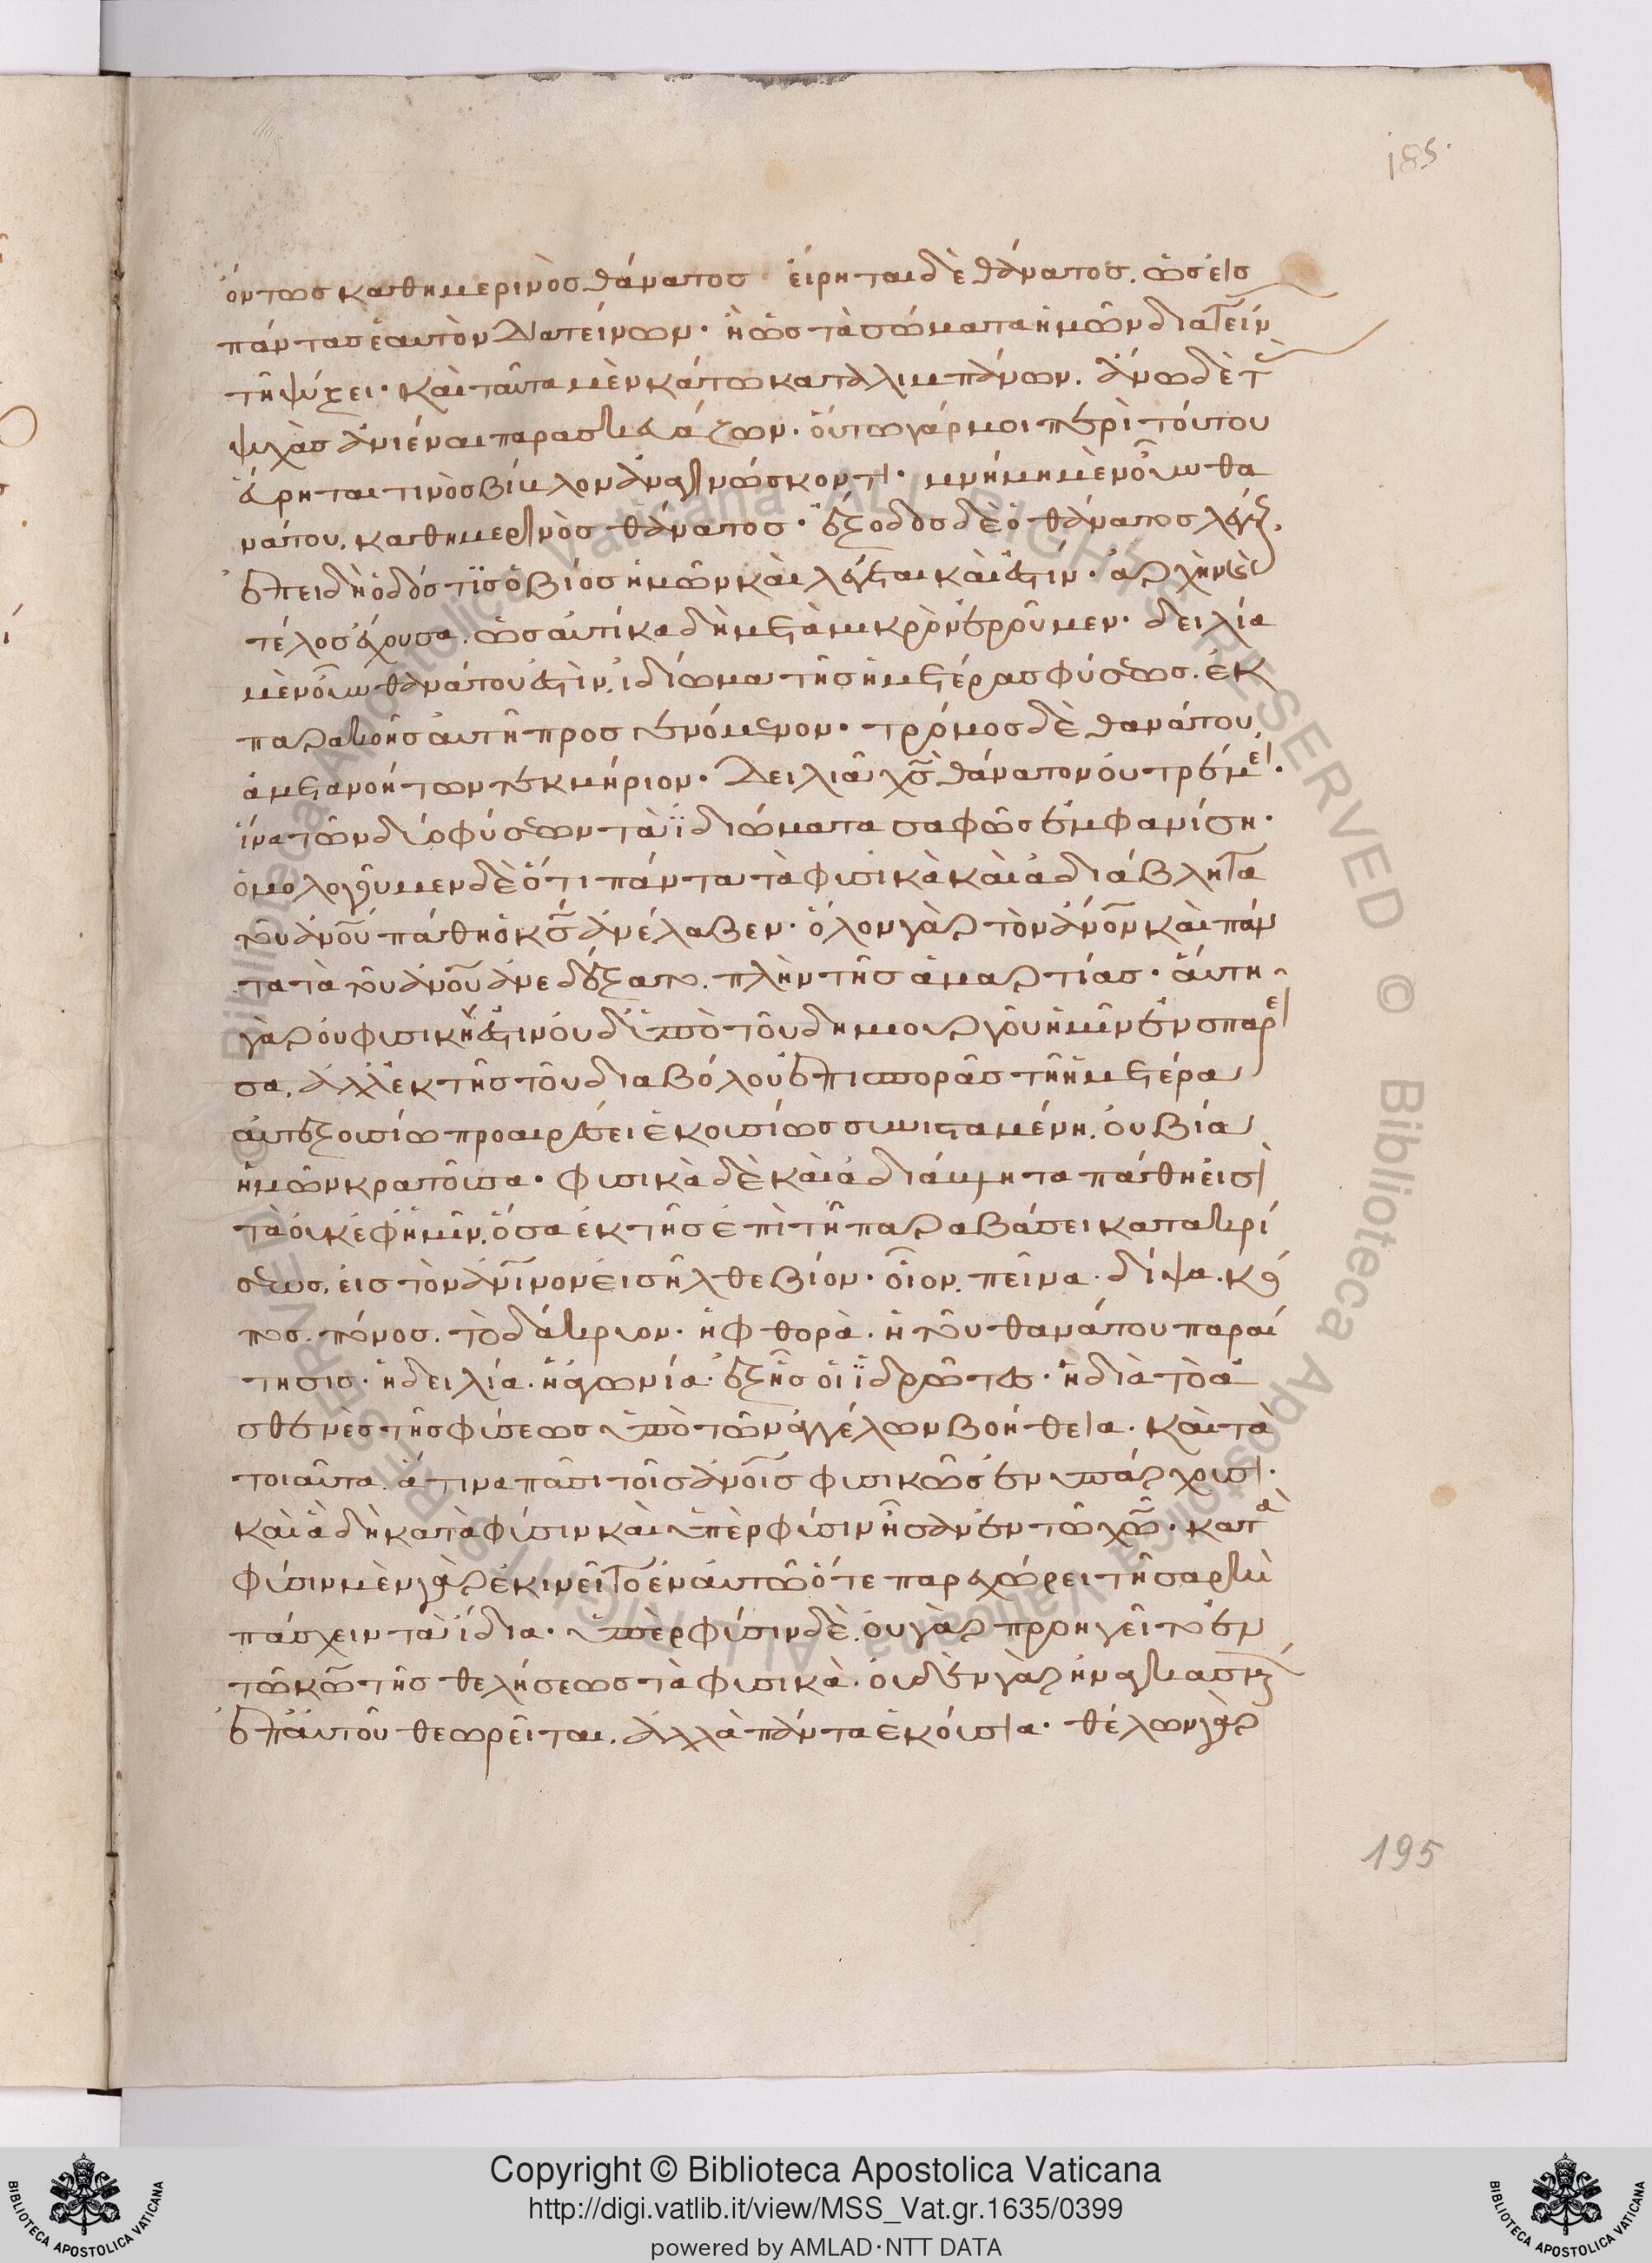 185.
ὄντως καθημερινὸς θάνατος εἴρηται δὲ θάνατος. ὡς εἰς
πάντας ἑαυτὸν διατείνων. ἢ ὡς τὰ σώματα ἡμῶν διατείν
τῆ ψύξει. καὶ ταῦτα μὲν κάτω καταλιμπάνων. ἄνω δὲ τ
ψυχὰς ἀνιέναι παρασκευάζων. οὕτω γάρ μοι περὶ τούτου
εἴρηται τινὸς βίβλον ἀναγινώσκοντι. μνήμη μὲν οὖν θα
νάτου, καθημερινὸς θάνατος. ἔξοδος δὲ ὁ θάνατος λέγε.
ἐπειδὴ ὁδός τις ὁ βίος ἡμῶν καὶ λέγεται καὶ ἔστιν. ἀρχὴν καὶ
τέλος ἔχουσα. ὡς αὐτίκα δὴ μετὰ μικρὸν ἐροῦμεν. δειλία
μὲν οὖν θανάτου ἐστὶν, ἰδίωμα τῆς ἡμετέρας φύσεως. ἐκ
παρακοῆς αὐτῆ προσγενόμενον. τρόμος δὲ θανάτου,
ἀμετανοήτων τεκμήριον. δειλιᾶ χς θάνατον οὐ τρέμει.
ἵνα τῶν δύο φύσεων τὰ ἰδιώματα σαφῶς ἐμφανίση.
ὁμολογοῦμεν δὲ ὅτι πάντα τὰ φυσικὰ καὶ ἀδιάβλητα
τοῦ ἀνου πάθη ὁ κς ἀνέλαβεν. ὅλον γὰρ τὸν ἀνον καὶ πάν
τα τὰ τοῦ ἀνου ἀνεδέξατο. πλὴν τῆς ἁμαρτίας. αὕτη
γὰρ οὐ φυσική ἐστιν οὐδ' ὑπὸ τοῦ δημιουργοῦ ἡμῖν ἐνσπαρεῖ
σα, ἀλλ' ἐκ τῆς τοῦ διαβόλου ἐπισπορᾶς τῆ ἡμετέρα
αὐτεξουσίω προαιρέσει ἑκουσίως συνισταμένη. οὐ βία
ἡμῶν κρατοῦσα. φυσικὰ δὲ καὶ ἀδιάβλητα πάθη εἰσὶ
τὰ οὐκ ἐφ' ἡμῖν, ὅσα ἐκ τῆς ἐπὶ τῆ παραβάσει κατακρί
σεως, εἰς τὸν ἀνινον εἰσῆλθε βίον. οἷον, πεῖνα. δίψα. κό
πος. πόνος. τὸ δάκρυον. ἡ φθορὰ. ἡ τοῦ θανάτου παραί
τησις. ἡ δειλία. ἡ ἀγωνία. ἐξ ἧς οἱ ἱδρῶτες. ἡ διὰ τὸ ἀ
σθενὲς τῆς φύσεως ὑπὸ τῶν ἀγγέλων βοήθεια. καὶ τὰ
τοιαῦτα. ἅτινα πᾶσι τοῖς ἀνοις φυσικῶς ἐνυπάρχουσι.
καὶ ἃ δὴ κατὰ φύσιν καὶ ὑπὲρ φύσιν ἦσαν ἐν τῶ χω. κατὰ
φύσιν μὲν γὰρ ἐκινεῖτο ἐν αὐτῶ ὅτε παρεχώρει τῆ σαρκὶ
πάσχειν τὰ ἴδια. ὑπὲρ φύσιν δὲ. οὐ γὰρ προηγεῖτο ἐν
τῶ κω τῆς θελήσεως τὰ φυσικὰ. οὐδὲν γὰρ ἠναγκασμ
ἐπ' αὐτοῦ θεωρεῖται. ἀλλὰ πάντα ἑκούσια. θέλων γὰρ
195
Copyright © Biblioteca Apostolica Vaticana
http://digi.vatlib.it/view/MSS_Vat.gr.1635/0399
powered by AMLAD·NTT DATA